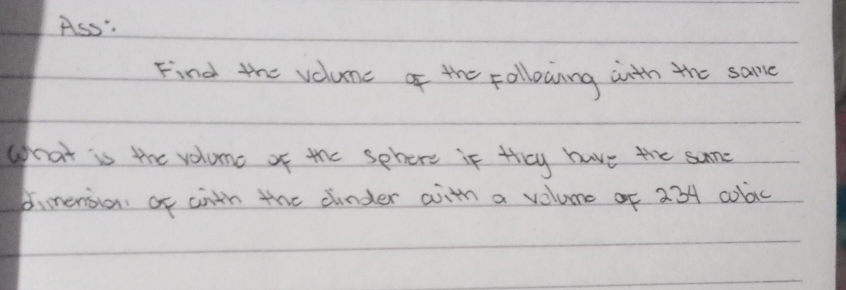 Ass:
Find the volume of the following with the same
What is the volume of the sphere if they have the same
dimension. of with the clinder with a volume of 234 cubic